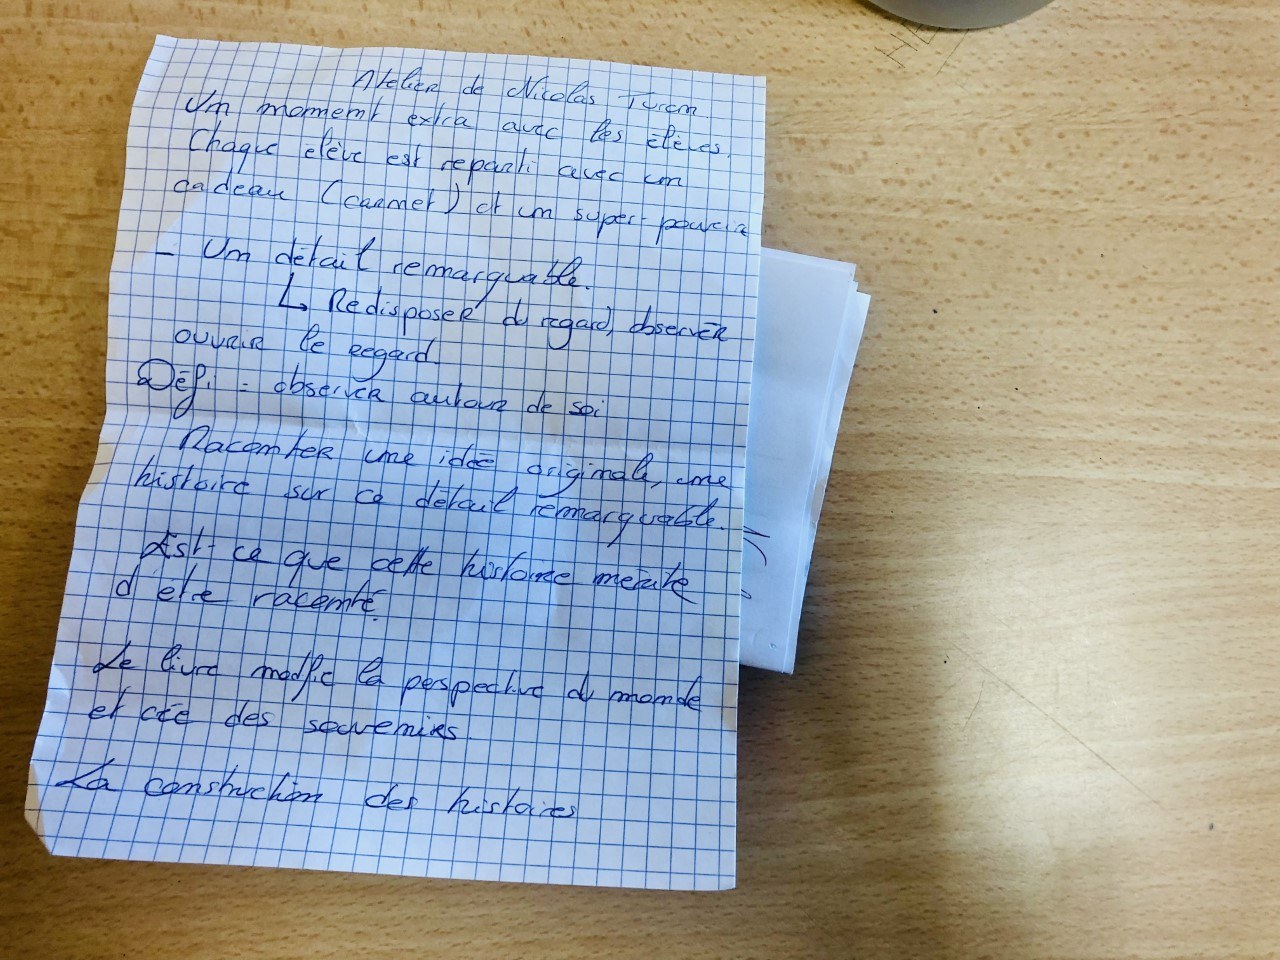 Atelier de Nicolas Turon
Un moment extra avec les élèves.
Chaque élève est reparti avec un
cadeau (carnet) et un super-pouvoir
- Un détail remarquable.
↳ Redisposer du regard, observer
ouvrir le regard.
Défi = observer autour de soi
Raconter une idée originale, une
histoire sur ce détail remarquable.
Est-ce que cette histoire mérite
d'être raconté.
Le livre modifie la perspective du monde
et crée des souvenirs
La construction des histoires